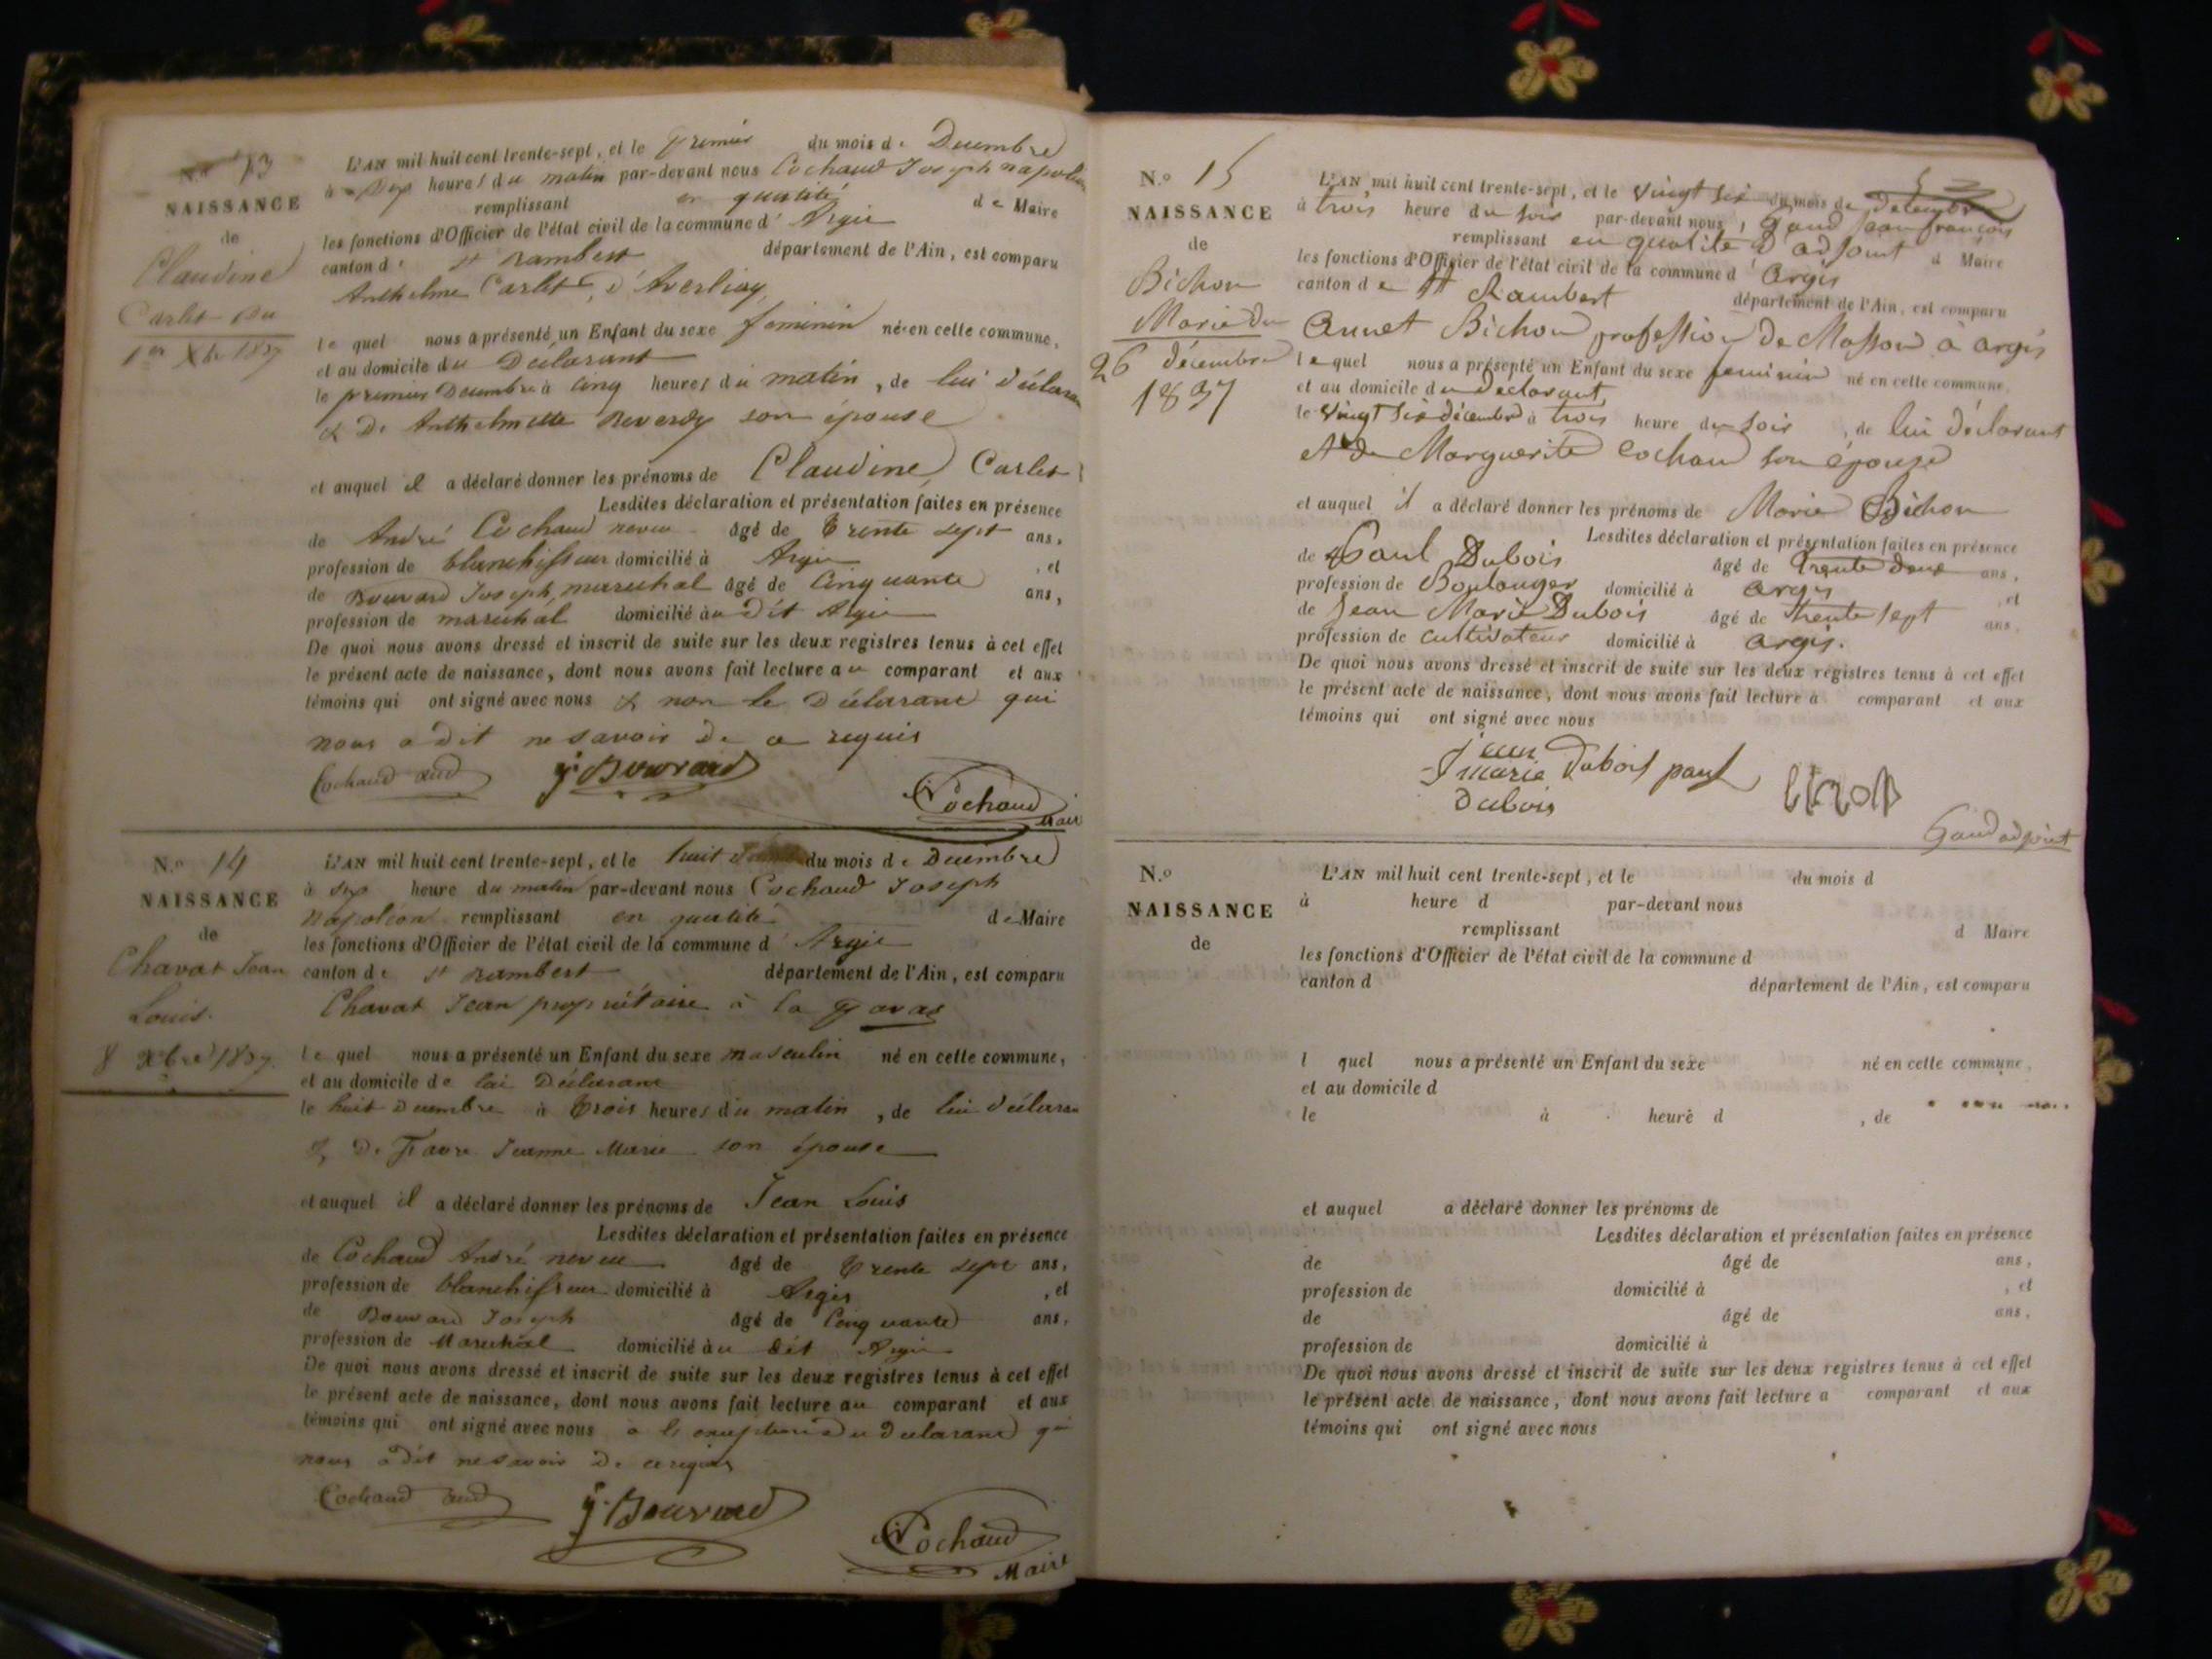 N.º 13
NAISSANCE
de
Claudine
Carlet du
1er Xbre 1837
L'AN mil huit cent trente-sept, et le premier du mois de Decembre
à sep heures du matin par-devant nous Cochaud Joseph napoléon
remplissant en qualité de Maire
les fonctions d'Officier de l'état civil de la commune d' Argis
canton de st rambert département de l'Ain, est comparu
Anthelme Carlet, d'
le quel nous a présenté un Enfant du sexe feminin né en cette commune,
et au domicile du Déclarant
le premier Decembre à cinq heures du matin, de lui déclarant
& De Anthelmette Reverdy son épouse
et auquel il a déclaré donner les prénoms de Claudine Carlet
Lesdites déclaration et présentation faites en présence
de André Cochaud neveu âgé de trente sept ans,
profession de blanchisseur domicilié à Argis , et
de Bouvard Joseph, marechal âgé de Cinquante ans,
profession de marechal domicilié au dit Argis
De quoi nous avons dressé et inscrit de suite sur les deux registres tenus à cet effet
le présent acte de naissance, dont nous avons fait lecture au comparant et aux
témoins qui ont signé avec nous & non le Déclarant qui
nous a dit ne savoir de ce requis
Cochaud and
j. Bouvard
Cochaud
Maire
N.º 14
NAISSANCE
de
Chavat Jean
Louis.
8 xbre 1837.
L'AN mil huit cent trente-sept, et le huit du mois de Decembre
à sep heure du matin par-devant nous Cochaud Joseph
Napoléon remplissant en qualité de Maire
les fonctions d'Officier de l'état civil de la commune d' Argis
canton de st rambert département de l'Ain, est comparu
Chavat Jean propriétaire à la
le quel nous a présenté un Enfant du sexe masculin né en cette commune,
et au domicile de lui Déclarant
le huit decembre à trois heures du matin, de lui déclarant
& De Favre Jeanne Marie son épouse
et auquel il a déclaré donner les prénoms de Jean Louis
Lesdites déclaration et présentation faites en présence
de Cochaud André neveu âgé de trente sept ans,
profession de blanchisseur domicilié à Argis , et
de Bouvard Joseph âgé de Cinquante ans,
profession de Marechal domicilié au dit Argis
De quoi nous avons dressé et inscrit de suite sur les deux registres tenus à cet effet
le présent acte de naissance, dont nous avons fait lecture au comparant et aux
témoins qui ont signé avec nous à l'exception du Déclarant qui
nous a dit ne savoir De ce requis
Cochaud and
j. Bouvard
Cochaud
Maire
N.º 15
NAISSANCE
de
Bichon
Marie du
26 décembre
1837
L'AN mil huit cent trente-sept, et le vingt six du mois de decembre
à trois heure du soir par-devant nous, Gaud jean françois
remplissant en qualité d'adjoint d Maire
les fonctions d'Officier de l'état civil de la commune d' Argis
canton de st Rambert département de l'Ain, est comparu
Annet Bichon profession de Masson à argis
le quel nous a présenté un Enfant du sexe feminin né en cette commune,
et au domicile du declarant,
le vingt six décembre à trois heure du soir , de lui déclarant
et de Marguerite Cochaud son épouse
et auquel il a déclaré donner les prénoms de Marie Bichon
Lesdites déclaration et présentation faites en présence
de Paul Dubois âgé de trente deux ans,
profession de Boulanger domicilié à argis , et
de Jean Marie Dubois âgé de trente sept ans,
profession de cultivateur domicilié à argis.
De quoi nous avons dressé et inscrit de suite sur les deux registres tenus à cet effet
le présent acte de naissance, dont nous avons fait lecture a comparant et aux
témoins qui ont signé avec nous
jean
marie
dubois
dubois paul
Gaud adjoint
N.º
NAISSANCE
de
L'AN mil huit cent trente-sept, et le du mois d
à heure d par-devant nous
remplissant d Maire
les fonctions d'Officier de l'état civil de la commune d
canton d département de l'Ain, est comparu
l quel nous a présenté un Enfant du sexe né en cette commune,
et au domicile d
le à heure d , de
et auquel a déclaré donner les prénoms de
Lesdites déclaration et présentation faites en présence
de âgé de ans,
profession de domicilié à , et
de âgé de ans,
profession de domicilié à
De quoi nous avons dressé et inscrit de suite sur les deux registres tenus à cet effet
le présent acte de naissance, dont nous avons fait lecture a comparant et aux
témoins qui ont signé avec nous